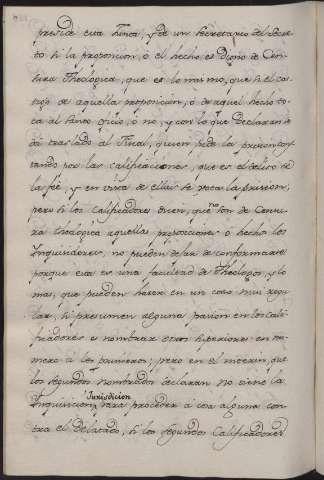 preside esta Junta, y de un Secretario del Secre-
to si la proposicion, ó el hecho es Digno de Cen-
sura Theologica, que es lo mismo, que si el cas-
tigo de aquella proposicion, ó de aquel hecho to-
ca al Santo oficio, ó no, y con lo que Declaran se
da traslado al Fiscal, quien pide la prision for-
mando por las calificaciones, que es el delito de
la fée, y en vista de ellas se vota la prision;
pero si los Calificadores dicen, que no son de Censu-
ra theologica aquellas proposiciones ó hechos los
Inquisidores, no pueden dejar de conformarse
porque esta es una facultad de Theologos, y lo
mas, que pueden hacer en un caso mui regu-
lar, si presumen alguna pasion en los cali-
ficadores es nombrar otros superiores en nu-
mero a los primeros; pero en el interin, que
los segundos nombrados declaran no tiene la
Inquisicion Jurisdicion para proceder á cosa alguna con-
tra el Delatado, si los segundos Calificadores